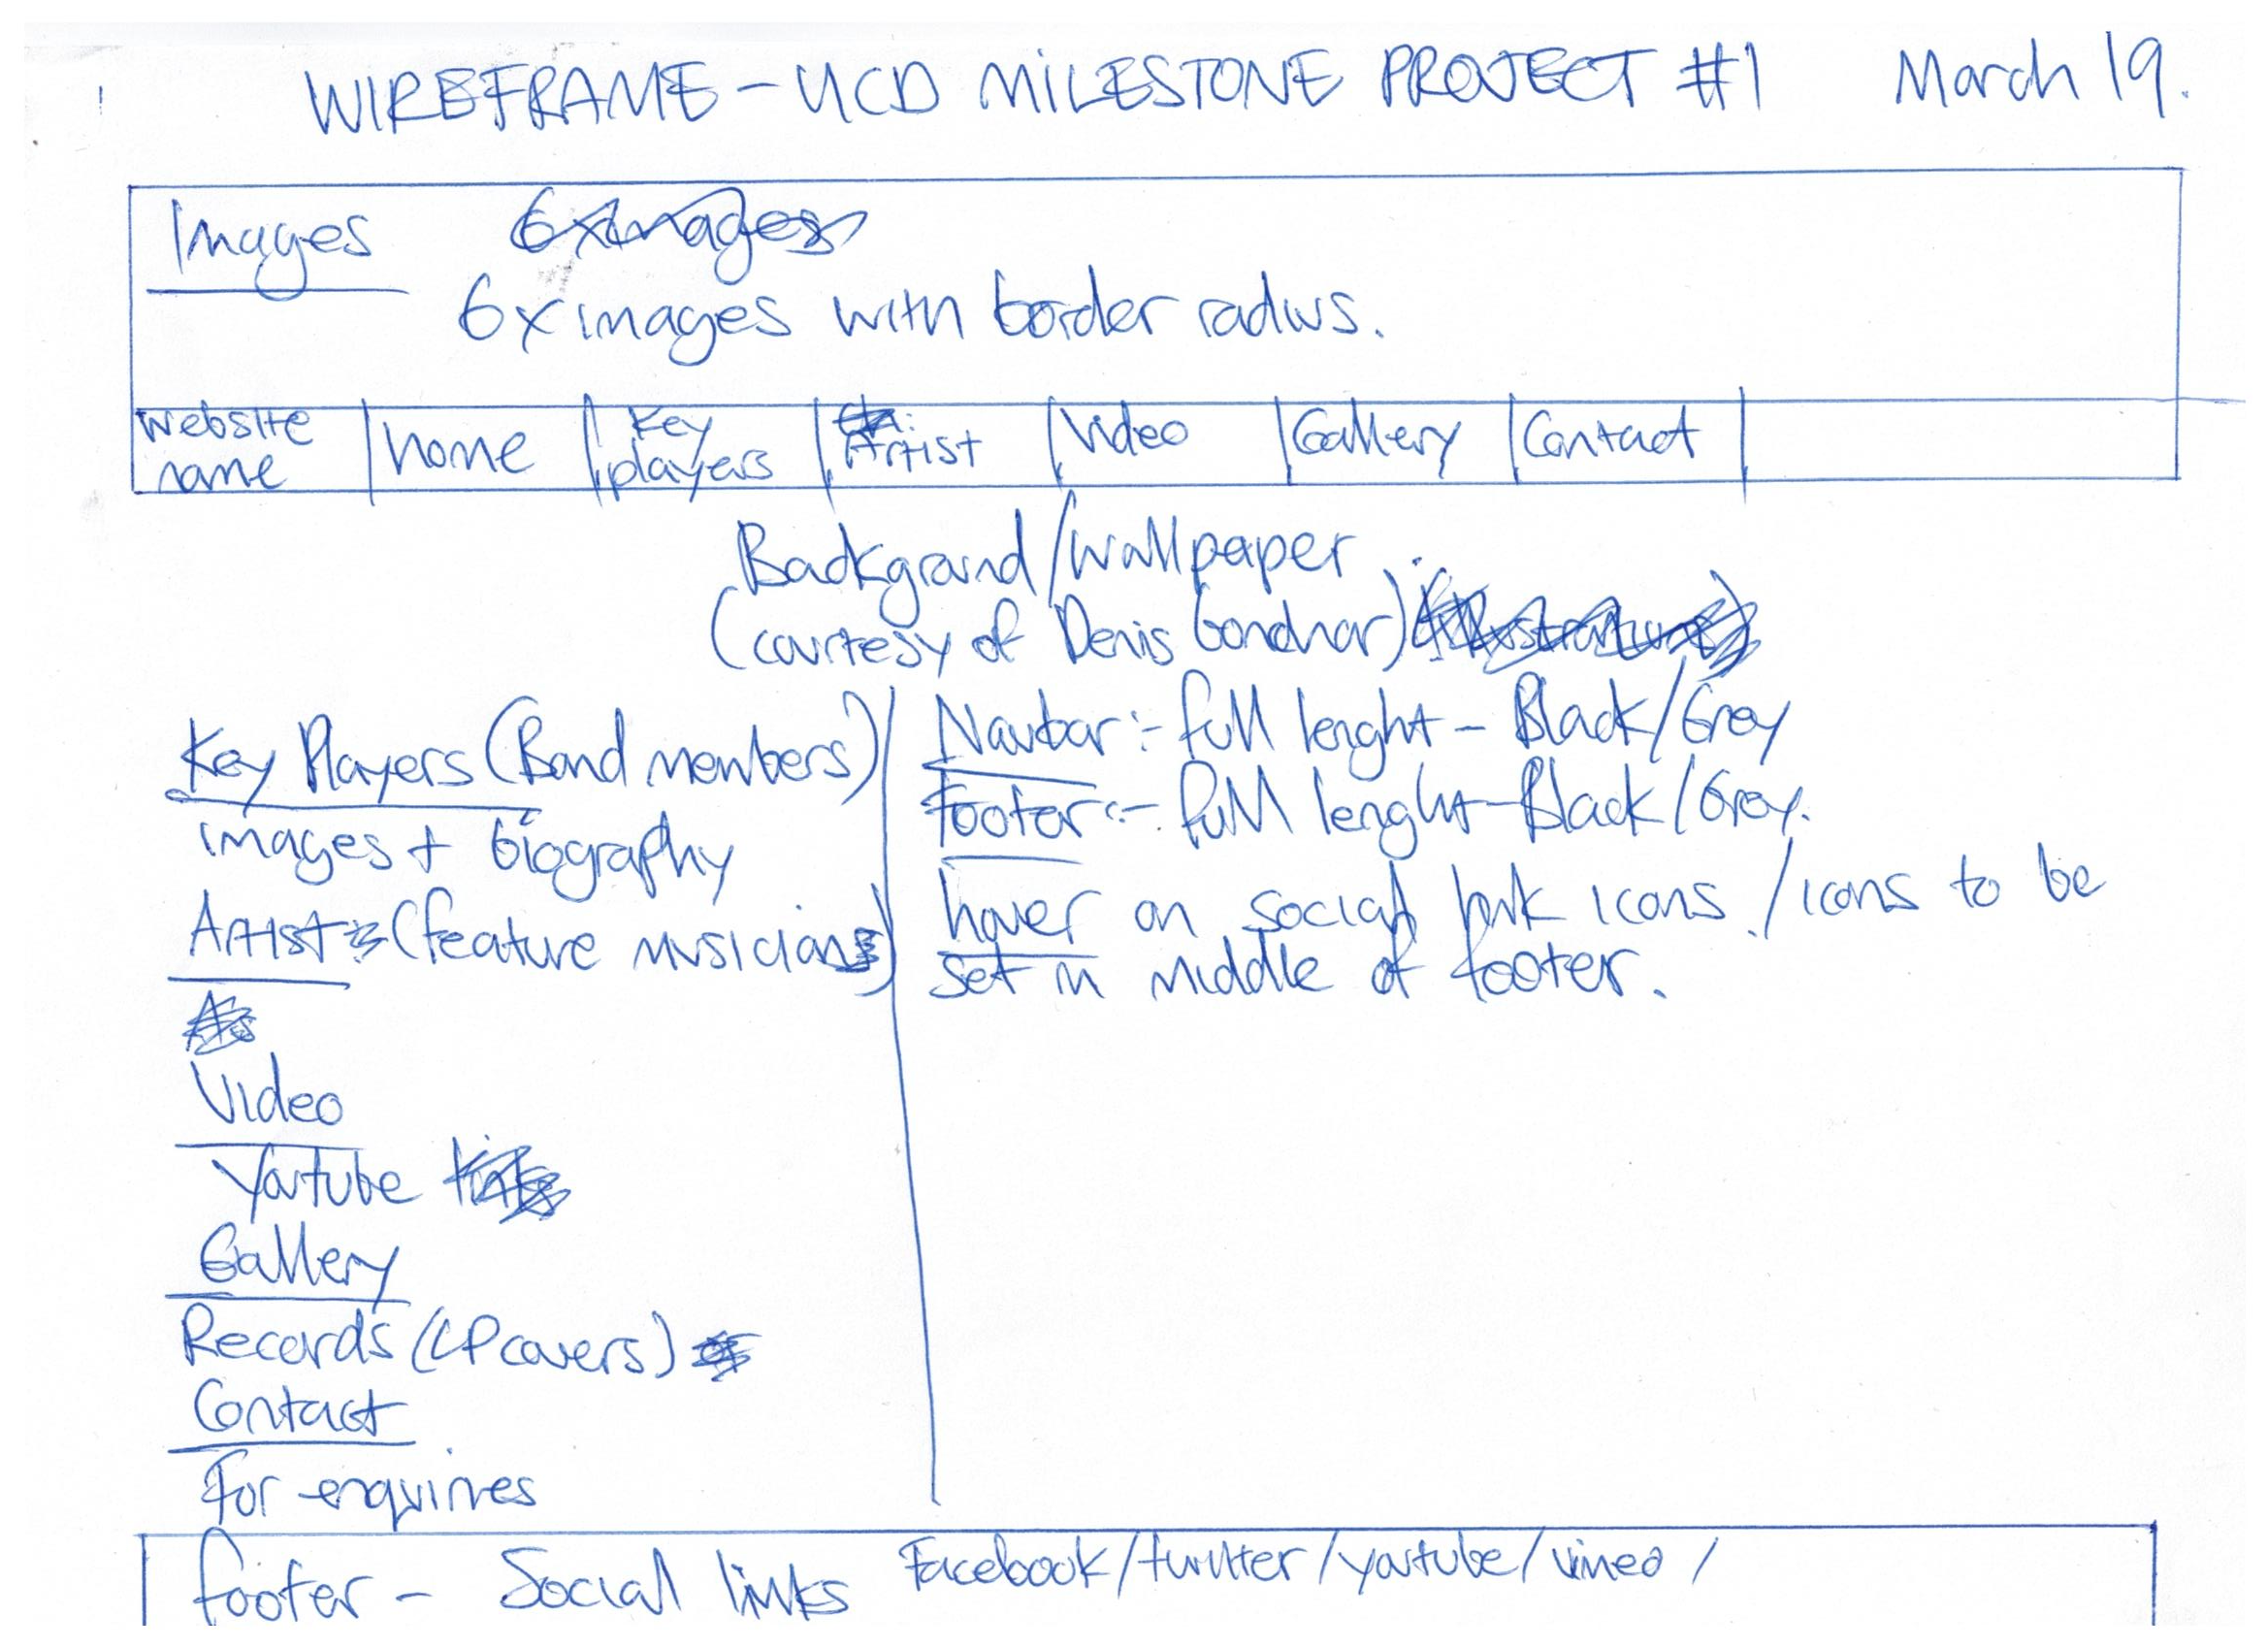 WIREFRAME - UCD MILESTONE PROJECT #1 March 19.
Images
6x images with border radius.
website name | home | Key players | Artist | Video | Gallery | Contact
Background/Wallpaper
(courtesy of Denis Gonchar)
Key Players (Band members)
images + biography
Artist (feature musician)
Video
Youtube
Gallery
Records (LP covers)
Contact
For enquiries
Navbar :- full lenght - Black/Grey
Footer :- full lenght - Black/Grey.
hover on social link icons / icons to be
set in middle of footer.
footer - Social links Facebook/twitter/youtube/vimeo/